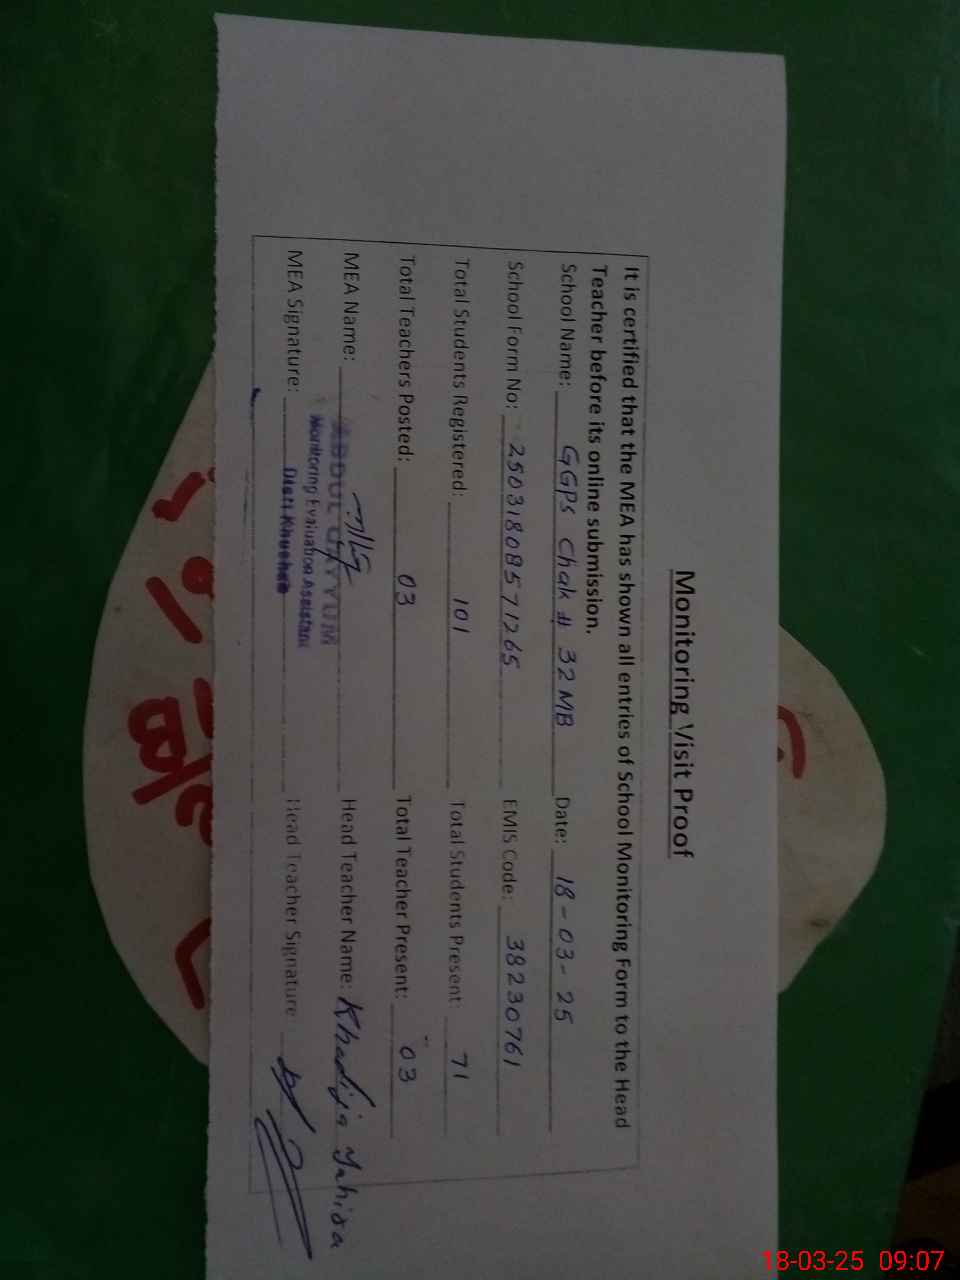 Monitoring Visit Proof
It is certified that the MEA has shown all entries of School Monitoring Form to the Head
Teacher before its online submission.
School Name: GGPS Chak # 32 MB Date: 18-03-25
School Form No: 25031808571265 EMIS Code: 38230761
Total Students Registered: 101 Total Students Present: 71
Total Teachers Posted: 03 Total Teacher Present: 03
MEA Name: ABDUL QAYYUM Head Teacher Name: Khadija
Monitoring Evaluation Assistant
MEA Signature: Distt Khushab Head Teacher Signature
18-03-25 09:07